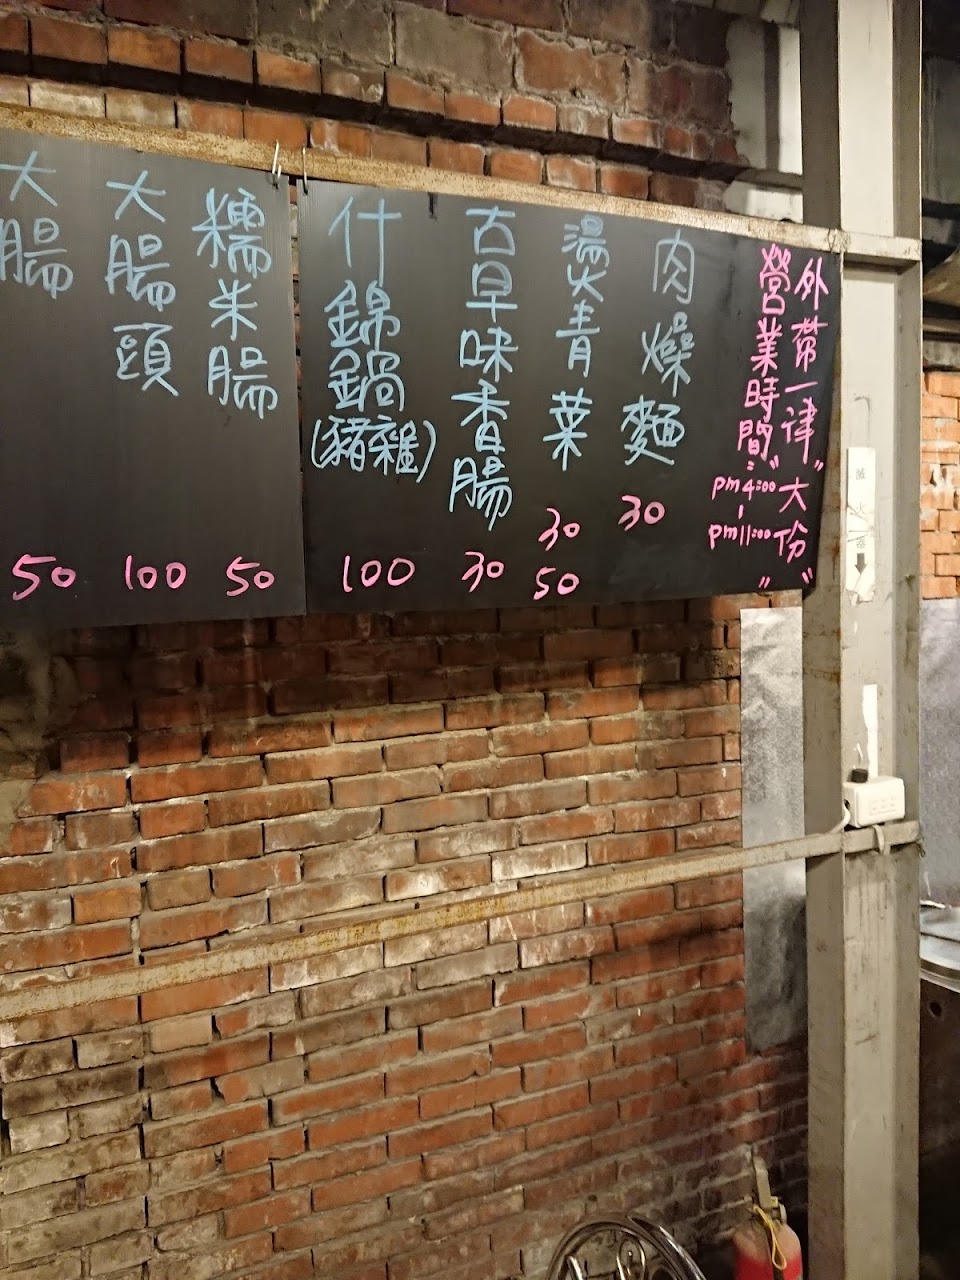 外帶一律"大份"
營業時間:
pm4:00
-
pm11:00
肉燥麵
30
燙青菜
30
50
古早味香腸
30
什錦鍋(豬雜)
100
糯米腸
50
大腸頭
100
大腸
50
滅火器